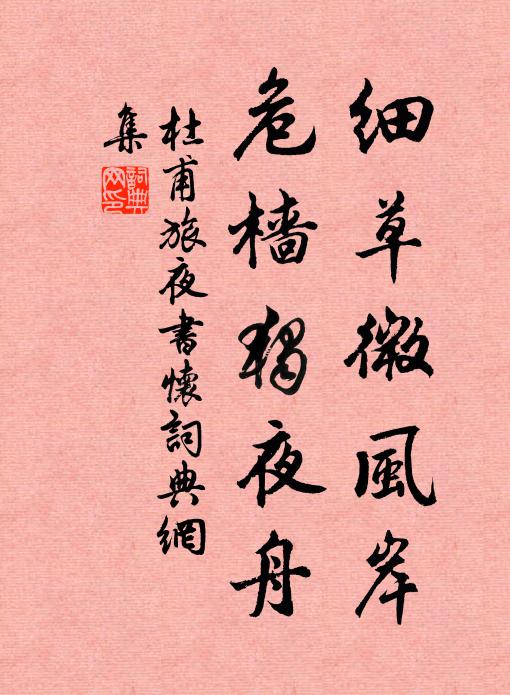 細草微風岸
危檣獨夜舟
杜甫旅夜書懷詞典網
集
詞典
网印